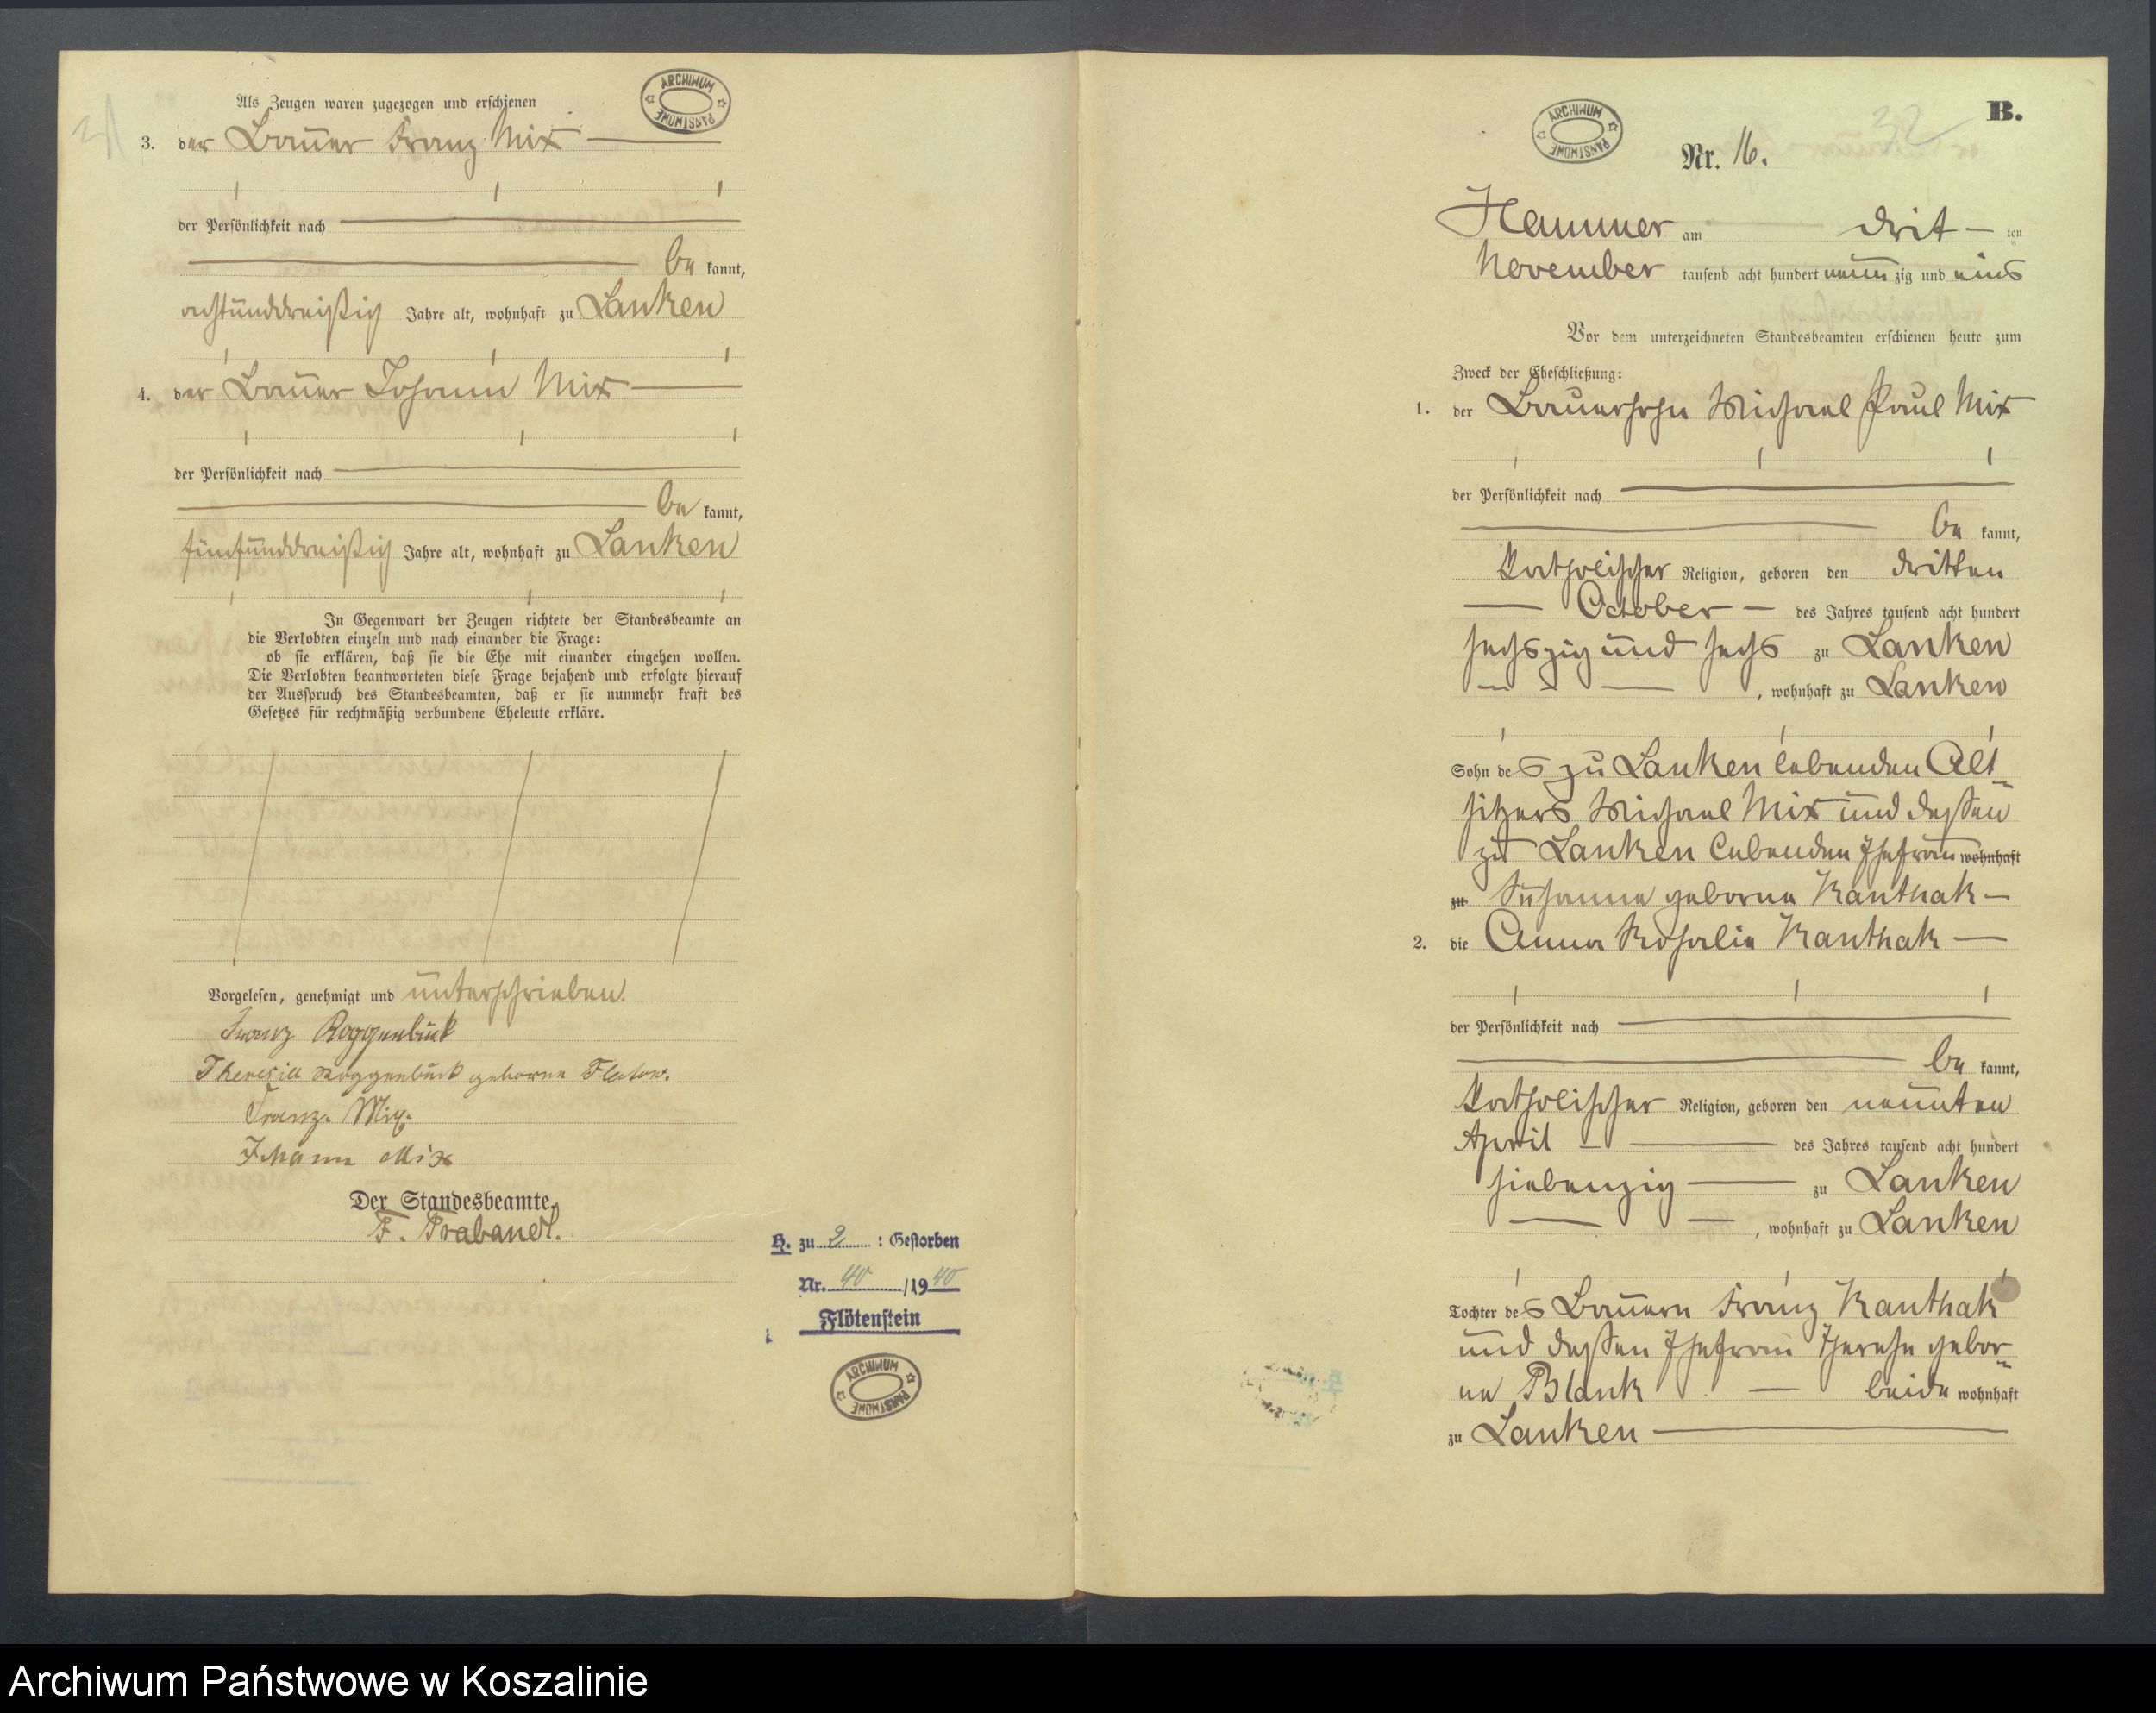 Als Zeugen waren zugezogen und erschienen
3. der Bauer Franz Mix
der Persönlichkeit nach
be kannt,
achtunddreißig Jahre alt, wohnhaft zu Lanken
4. der Bauer Johann Mix
der Persönlichkeit nach
be kannt,
fünfunddreißig Jahre alt, wohnhaft zu Lanken
In Gegenwart der Zeugen richtete der Standesbeamte an
die Verlobten einzeln und nach einander die Frage:
ob sie erklären, daß sie die Ehe mit einander eingehen wollen.
Die Verlobten beantworteten diese Frage bejahend und erfolgte hierauf
der Ausspruch des Standesbeamten, daß er sie nunmehr kraft des
Gesetzes für rechtmäßig verbundene Eheleute erkläre.
Vorgelesen, genehmigt und unterschrieben.
Franz Roggenbuck
Theresia Roggenbuck geborne Flatow.
Franz Mix.
Johann Mix
Der Standesbeamte.
F. Prabandt.
H. zu 2 : Gestorben
Nr. 40 /1940
Flötenstein
ARCHIWUM PAŃSTWOWE
ARCHIWUM PAŃSTWOWE
ARCHIWUM PAŃSTWOWE
32
B.
Nr. 16.
Hammer am drit- ten
November tausend acht hundert neun zig und eins
Vor dem unterzeichneten Standesbeamten erschienen heute zum
Zweck der Eheschließung:
1. der Bauersohn Michael Paul Mix
der Persönlichkeit nach
be kannt,
katholischer Religion, geboren den dritten
October des Jahres tausend acht hundert
sechszig und sechs zu Lanken
, wohnhaft zu Lanken
Sohn des zu Lanken lebenden Alt-
sitzers Michael Mix und dessen
zu Lanken lebenden Ehefrau wohnhaft
zu Susanna geborne Kanthak -
2. die Anna Rosalie Kanthak -
der Persönlichkeit nach
be kannt,
katholischer Religion, geboren den neunten
April des Jahres tausend acht hundert
siebenzig zu Lanken
, wohnhaft zu Lanken
Tochter des Bauern Franz Kanthak
und dessen Ehefrau Therese gebor-
ne Blank - beide wohnhaft
zu Lanken
Archiwum Państwowe w Koszalinie